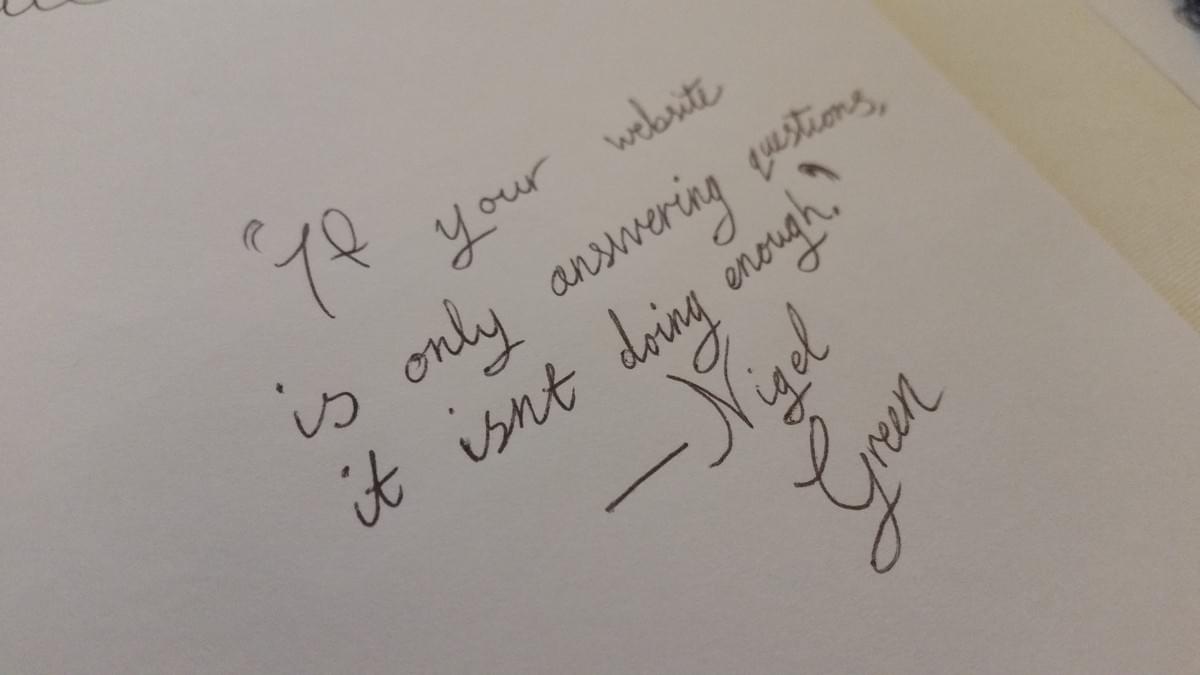 "If your website
is only answering questions,
it isnt doing enough."
—Nigel
Green